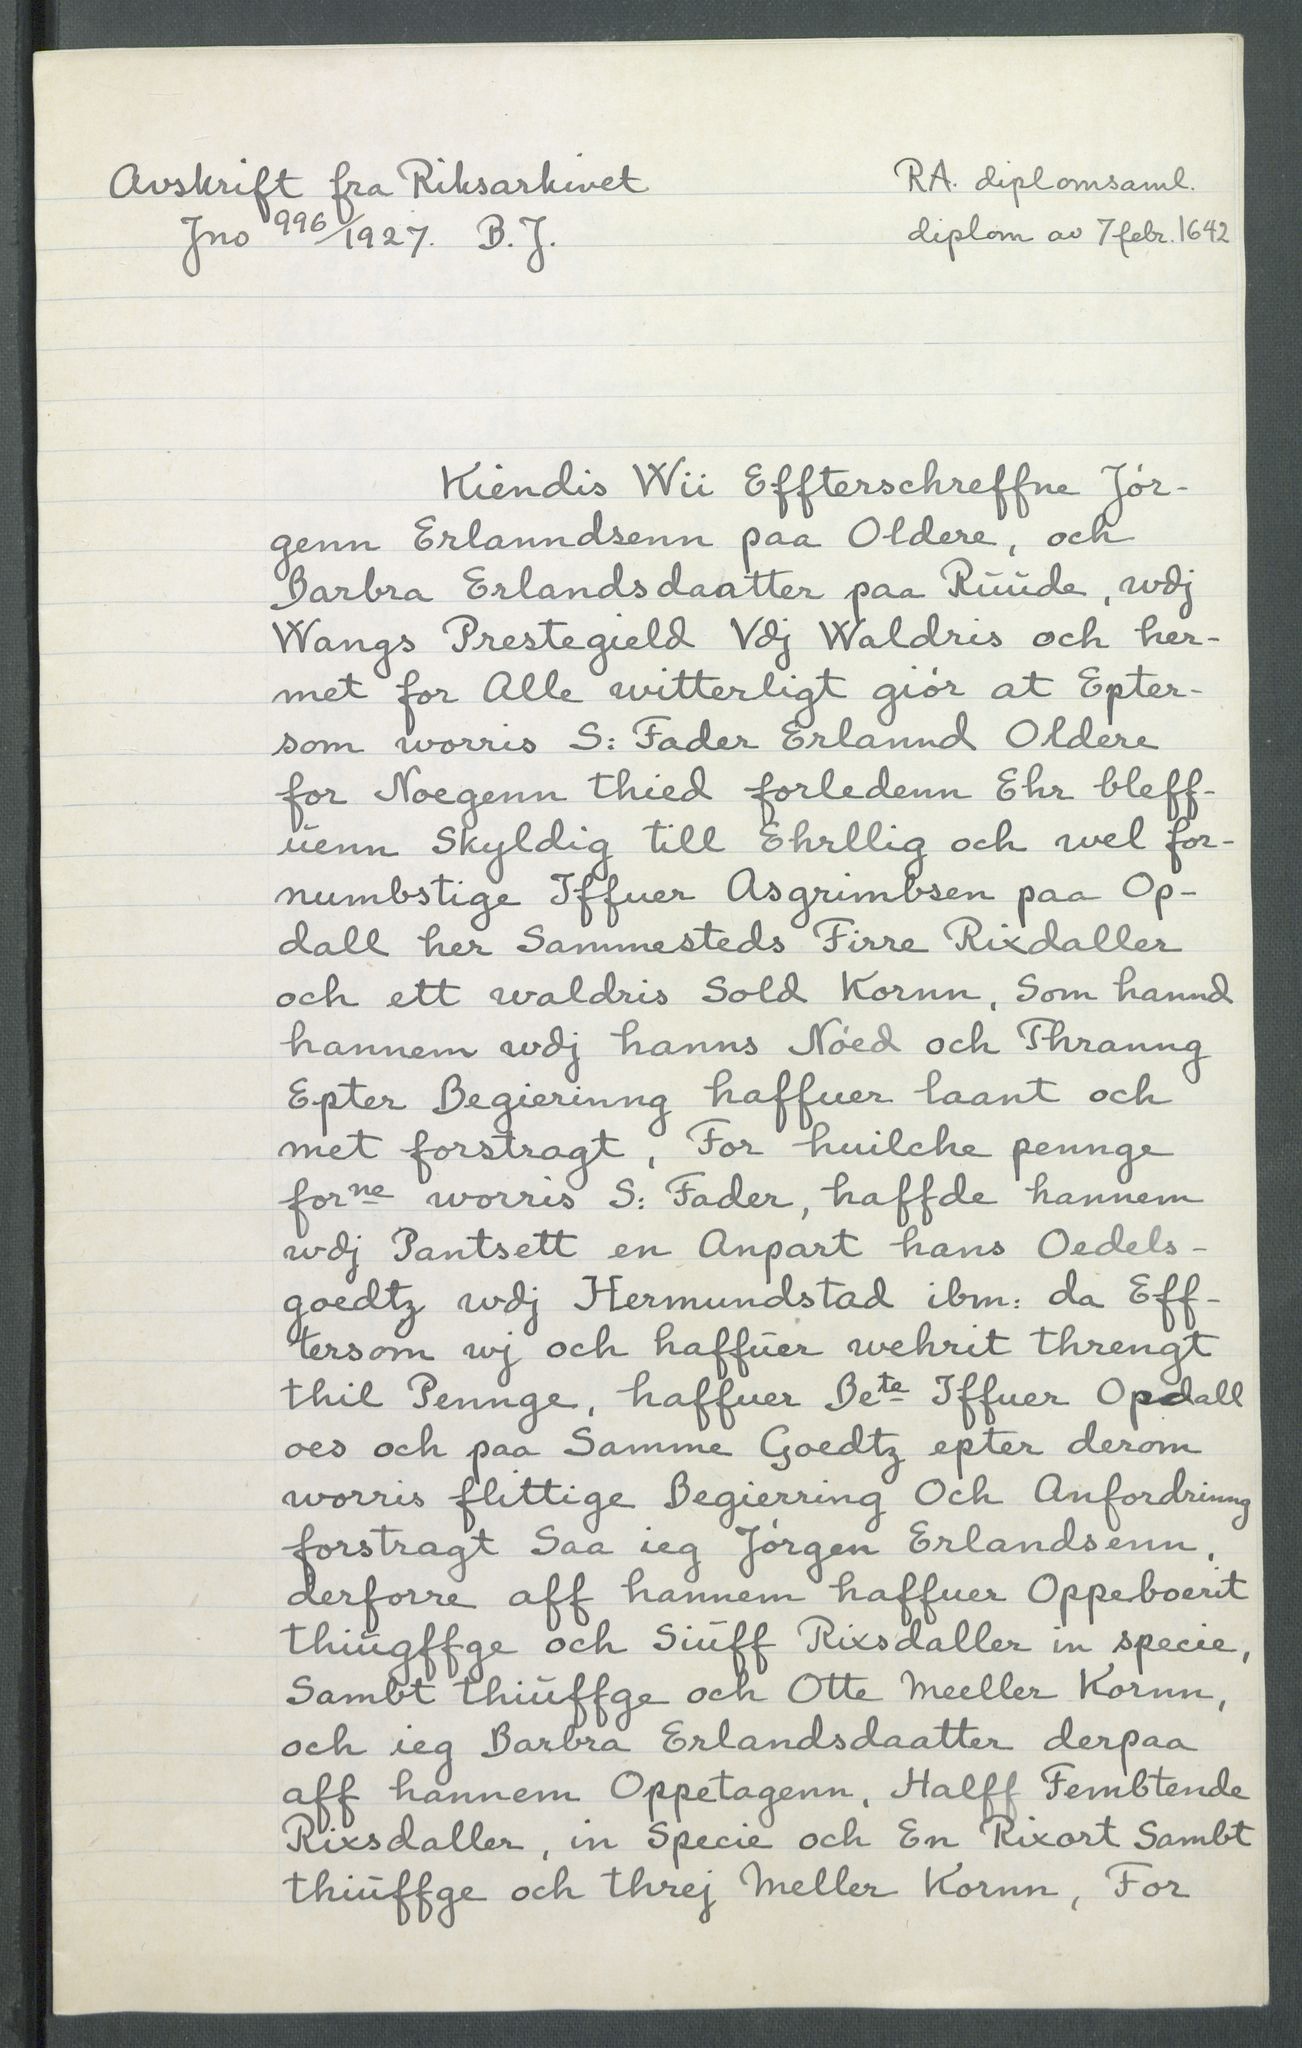 Avskrift fra Riksarkivet
Jno 996/1927. B.J.
RA. diplomsaml.
diplom av 7 febr. 1642
Kiendis Wii Effterschreffne Jór-
genn Erlanndsenn paa Oldere, och
Barbra Erlandsdaatter paa Rŭŭde, wdj
Wangs Prestegield Vdj Waldris och her-
met for Alle witterligt giór at Epter-
som worris S: Fader Erlannd Oldere
for Noegenn thied forledenn Ehr bleff-
ŭenn Skyldig till Ehrllig och wel for-
numbstige Iffuer Asgrimbsen paa Op-
dall her Sammesteds Firre Rixdaller
och ett waldris Sold Kornn, Som hannd
hannem wdj hanns Nóed och Thranng
Epter Begierinng haffuer laant och
met forstragt, For huilche pennge
forne worris S: Fader, haffde hannem
wdj Pantsett en Anpart hans Oedels-
goedtz wdj Hermundstad ibm: da Eff-
tersom wj och haffŭer wehrit threngt
thil Pennge, haffuer Bete Iffuer Opdall
oes och paa Samme Goedtz epter derom
worris flittige Begierring Och Anfordrinng
forstragt Saa ieg Jórgen Erlandsenn,
derforre aff hannem haffuer Oppeboerit
thiŭgffge och Siŭff Rixsdaller in specie,
Sambt thiŭffge och Otte Meeller Kornn,
och ieg Barbra Erlandsdaatter derpaa
aff hannem Oppetagenn, Halff Fembtende
Rixsdaller, in Specie och En Rixort Sambt
thiŭffge och threj Meller Kornn, For